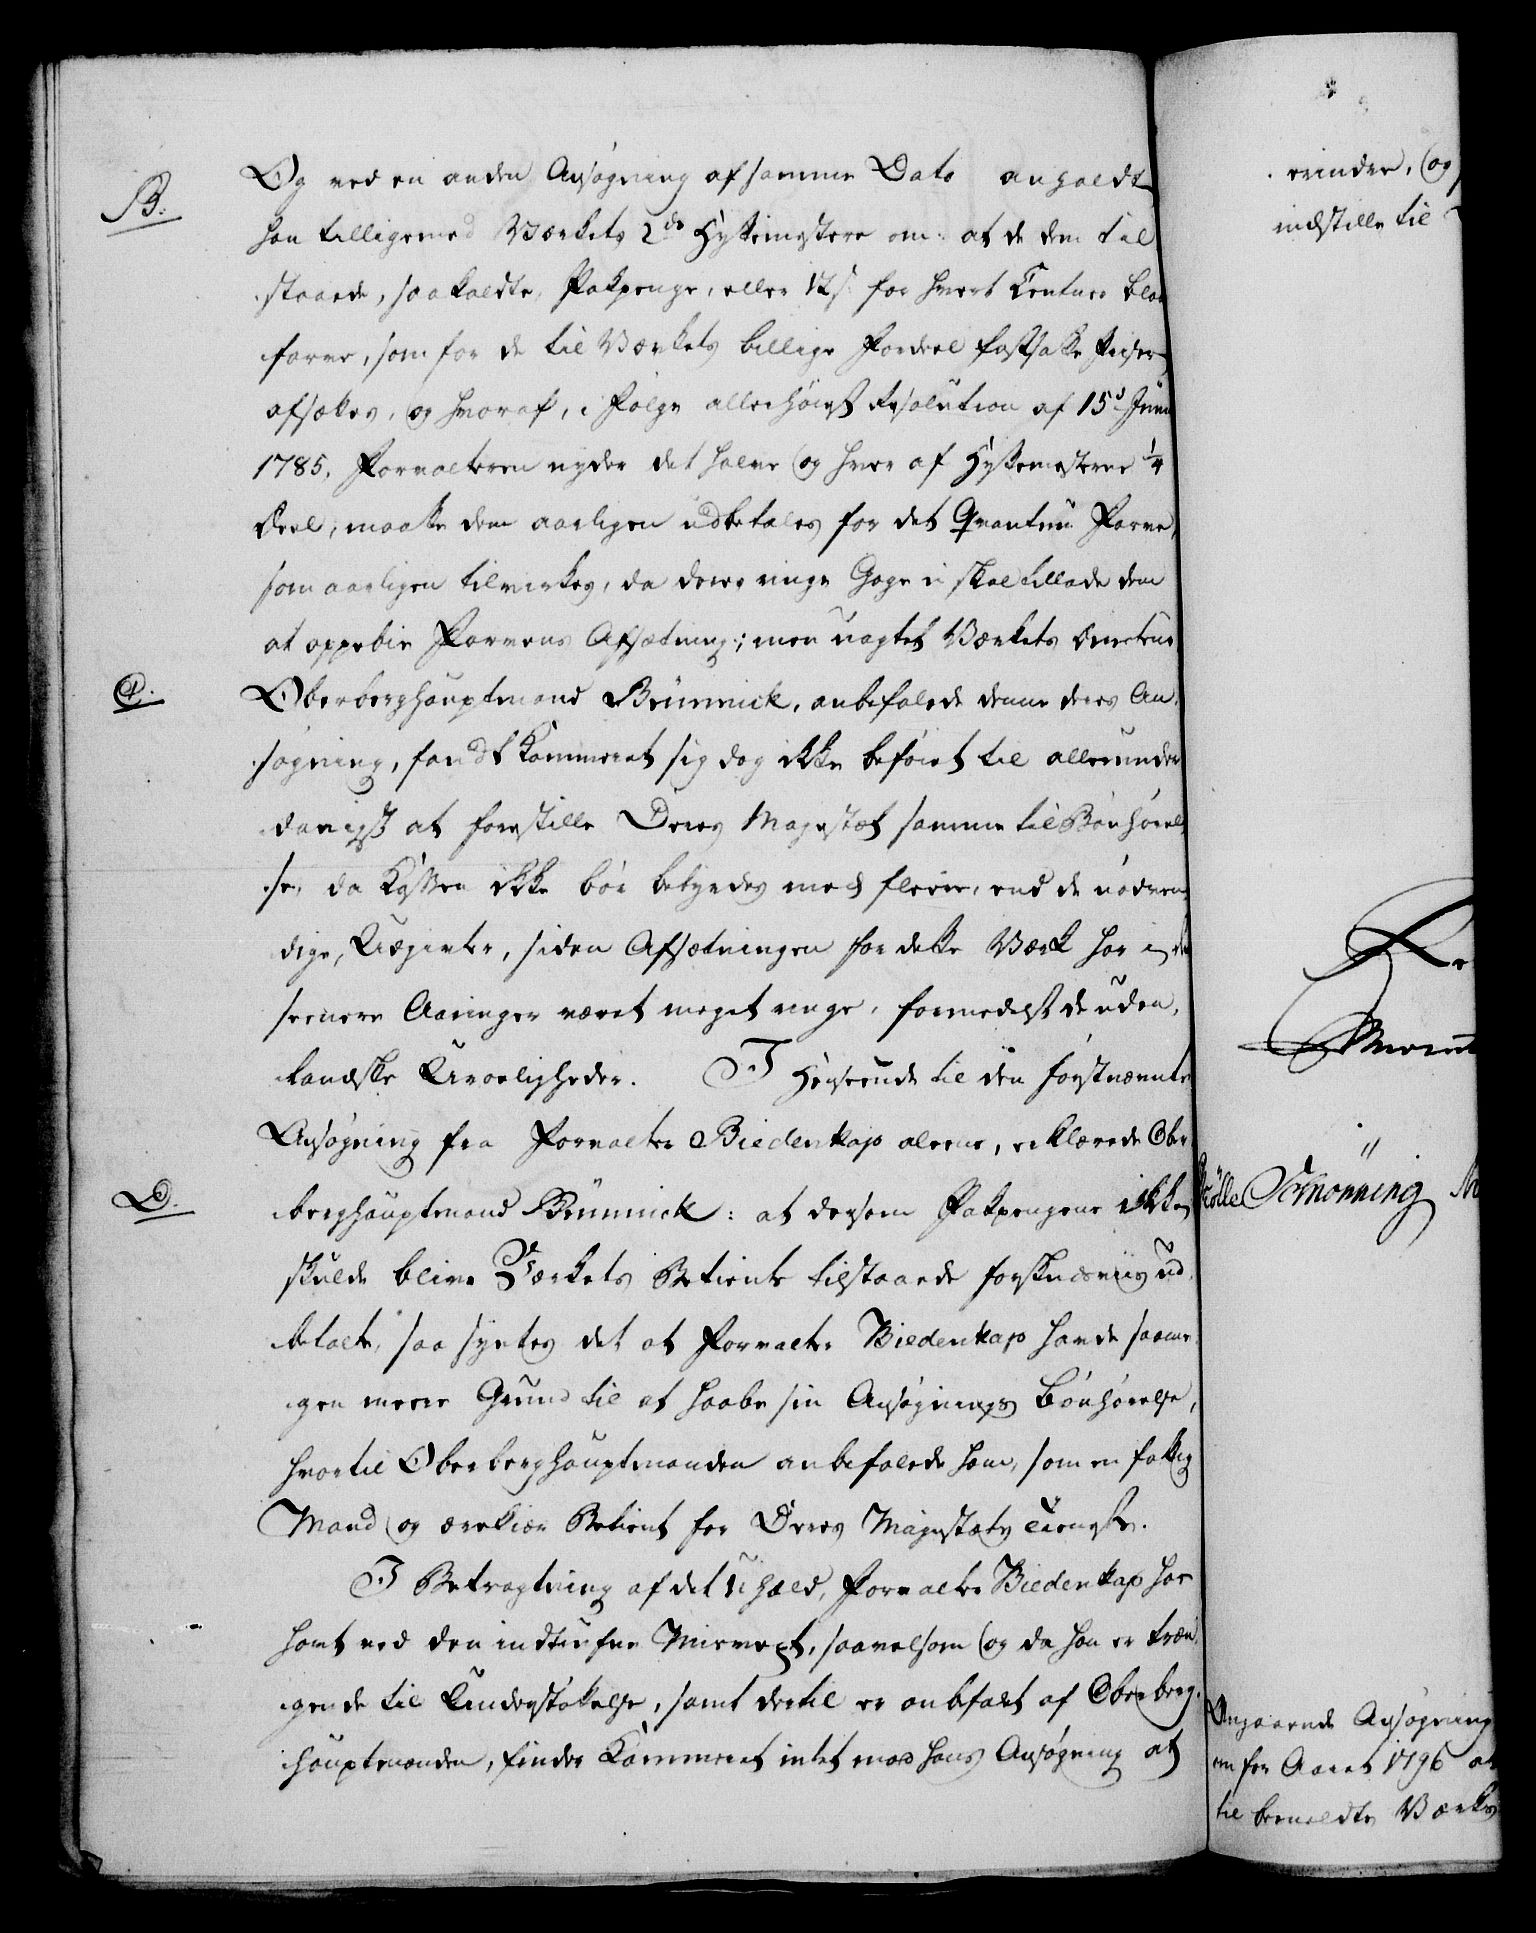 B. Og ved en anden Ansøgning af samme Dato anholdt
han tilligemed Værkets 2de Hyttemestere om: at de dem til
staaede, saakaldte, Pakpenge, eller 12 s. for hvert Centner blaa
farve, som for de til Værkets billige Fordeel fastsatte Priser
afsættes, og hvoraf, i Følge allerhøiest Resolution af 15d Junii
1785, Forvalteren nyder det halve og hver af Hyttemesterne 1/4
Deel, maatte dem aarligen udbetales for det Qvantum Farve,
som aarligen tilvirkes, da deres ringe Gage ei skal tillade dem
at oppebie Farvens Afsætning; men uagtet Værkets Directeur
C. Oberberghauptmand Brünnick, anbefalede denne deres An-
søgning, fandt Kammeret sig dog ikke beføiet til allerunder
danigst at forestille Deres Majestæt samme til Bønhørel
se, da Kassen ikke bør betyndes med fleere, end de nødven
dige, Udgivter, siden Afsætningen for dette Værk har i de
seenere Aaringer været meget ringe, formedelst de uden-
landske Uroeligheder. I Henseende til den førstnævnte
Ansøgning fra Forvalter Biedenkap aleene, erklærede Ober-
D. berghauptmand Brünnick: at dersom Pakpengene ikke
skulde blive Værkets Betiente tilstaaede forskudsviis ud-
betalte, saa syntes det at Forvalter Biedenkap havde saame-
gen meere Grund til at haabe sin Ansøgnings Bønhørelse,
hvortil Oberberghauptmanden anbefalede ham, som en fattig
Mand og ærekiær Betient for Deres Majestæts Tieneste.
I Betragtning af det Uheld, Forvalter Biedenkap har
havt ved den indtrufne Misvext, saavelsom og da han er træn-
gende til Understøttelse, samt dertil er anbefalet af Oberberg-
hauptmanden, finder Kammeret intet mod hans Ansøgning at
erindre, og
indstille til
Re
Schönning
Angaaende Ansøgning
om for Aaret 1796 at
til bemeldte Værks